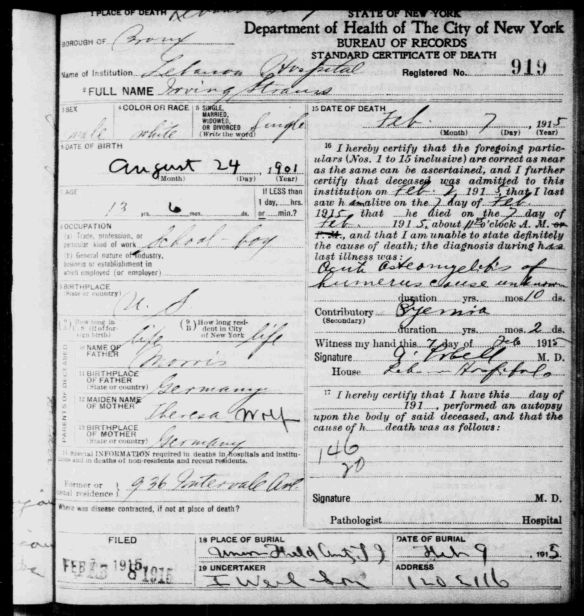 1 PLACE OF DEATH
STATE OF NEW YORK
Department of Health of The City of New York
BUREAU OF RECORDS
STANDARD CERTIFICATE OF DEATH
BOROUGH OF Bronx
Name of Institution Lebanon Hospital
Registered No. 919
2 FULL NAME Irving Strauss
3 SEX
male
4 COLOR OR RACE
white
5 SINGLE,
MARRIED,
WIDOWED,
OR DIVORCED
(Write the word)
Single
6 DATE OF BIRTH
August 24 1901
(Month) (Day) (Year)
7 AGE
13 yrs. 6 mos. ds.
If LESS than
1 day, hrs.
or min.?
8 OCCUPATION
(a) Trade, profession, or
particular kind of work
School-boy
(b) General nature of industry,
business or establishment in
which employed (or employer)
9 BIRTHPLACE
(State or country)
U. S
How long in
U. S. (if of for-
eign birth)
life
How long resi-
dent in City
of New York
life
PARENTS OF DECEASED
10 NAME OF
FATHER
Morris
11 BIRTHPLACE
OF FATHER
(State or country)
Germany
12 MAIDEN NAME
OF MOTHER
Theresa Wolf
13 BIRTHPLACE
OF MOTHER
(State or country)
Germany
14 Special INFORMATION required in deaths in hospitals and institu-
tions and in deaths of non-residents and recent residents.
Former or
usual residence
936 Intervale Ave.
Where was disease contracted, if not at place of death?
FILED
FEB 1915
8 1915
15 DATE OF DEATH
Feb. 7, 1915
(Month) (Day) (Year)
16 I hereby certify that the foregoing partic-
ulars (Nos. 1 to 15 inclusive) are correct as near
as the same can be ascertained, and I further
certify that deceased was admitted to this
institution on Feb 191 5, that I last
saw h alive on the 7 day of Feb
1915, that he died on the 7 day of
Feb. 191 5, about o'clock A. M. or
P. M., and that I am unable to state definitely
the cause of death; the diagnosis during h
last illness was:
Acute Osteomyelitis of
humerus cause unknown
duration yrs. mos. 10 ds.
Contributory Pyemia
(Secondary)
duration yrs. mos. 2 ds.
Witness my hand this 7 day of Feb 1915
Signature M. D.
House Hospital
17 I hereby certify that I have this day of
191 , performed an autopsy
upon the body of said deceased, and that the
cause of h death was as follows:
146
20
Signature M. D.
Pathologist Hospital
18 PLACE OF BURIAL
Union Field
DATE OF BURIAL
Feb 9 1915
19 UNDERTAKER
ADDRESS
120 E 116